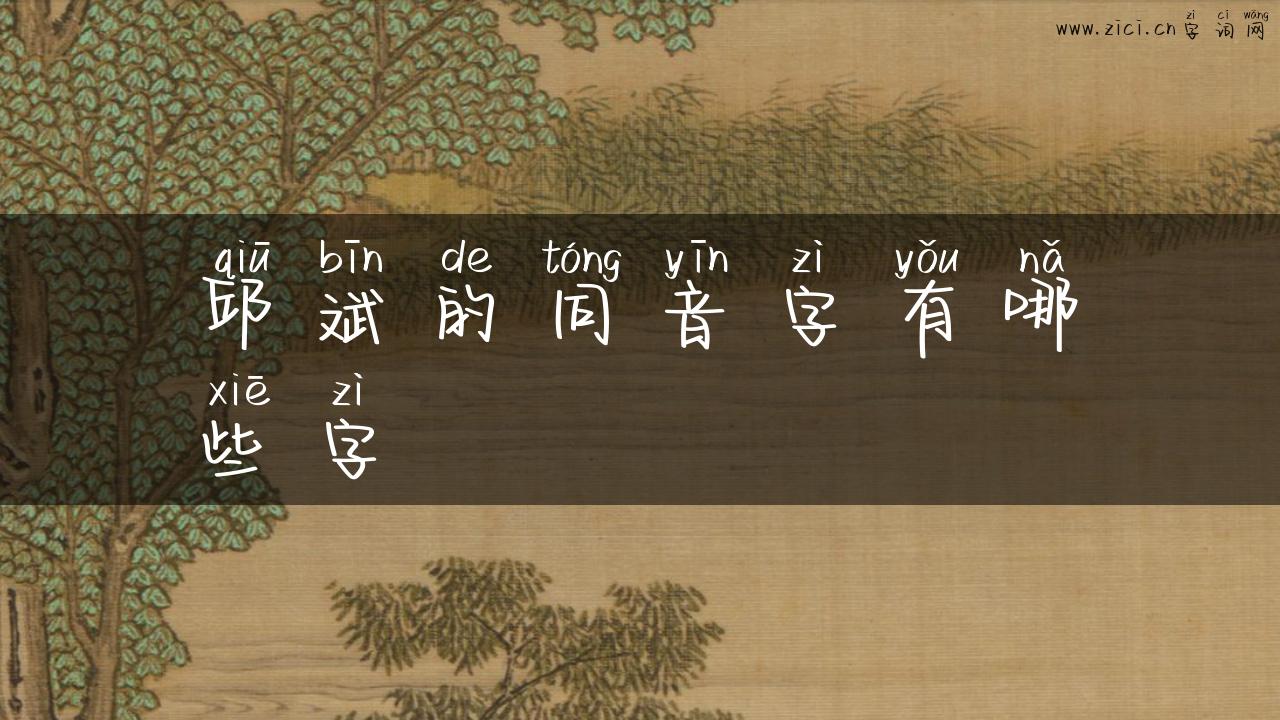 zì cí wǎng
www.zici.cn 字词网
qiū bīn de tóng yīn zì yǒu nǎ
邱斌的同音字有哪
xiē zì
些字